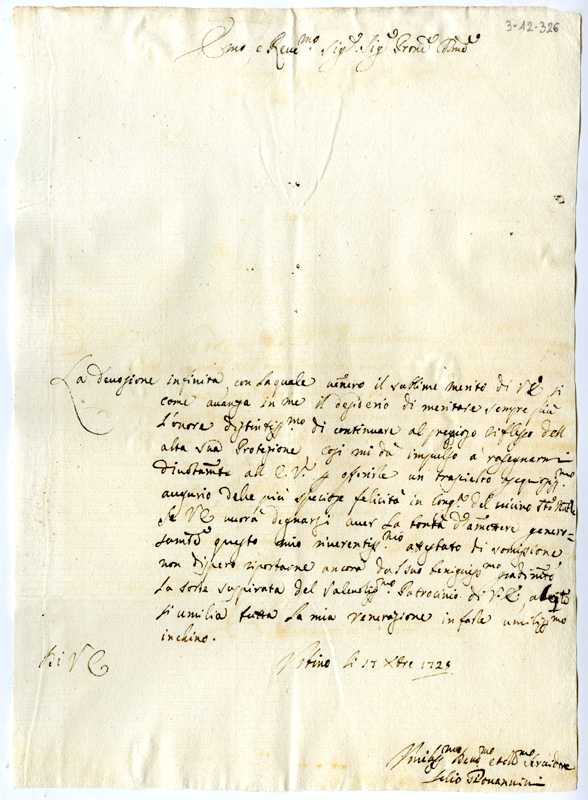 3-12-326
Emo, e Reve.mo Sig.e Sig.e Prone Colmo
La devozione infinita, con la quale venero il sublime merito di V.E. si
come avanza in me il desiderio di meritare sempre più
l'onore distintiss.mo di continuare al prezioso riflesso dell
alta sua Protezione, così mi dà impulso à rassegnarmi
divotam.te all E.V. p offerirle un
augurio delle più speciose felicità in del vicino S.to Natale
Se V.E. vorrà degnarsi aver la bontà d'ametere genero-
samte questo mio riverentiss.mo attestato di somissione
non dispero riportarne ancora dal suo beniguiss.mo
la sorte suspirata del valevoliss.mo Patrocinio di V.E.,
si umilia tutta la mia venerazione in farle umiliss.mo
inchino.
Di V E
Urbino li 17 Xbre 1723
Umiliss.mo Devo.mo et obb.mo Servidore
Lelio